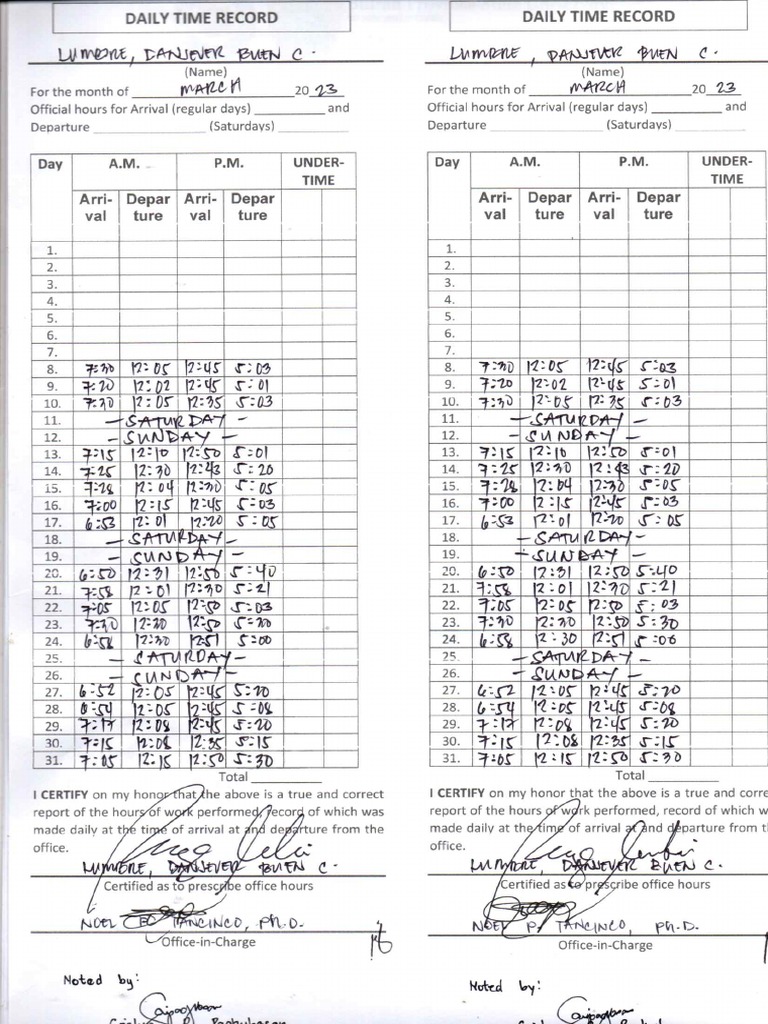 DAILY TIME RECORD
LUMBRE, DANIEVER BUEN C.
(Name)
For the month of MARCH 2023
Official hours for Arrival (regular days) ____________ and
Departure ____________________ (Saturdays) ____________
Day A.M. P.M. UNDER-TIME
Arri-val Depar ture Arri-val Depar ture
1.
2.
3.
4.
5.
6.
7.
8. 7:30 12:05 12:45 5:03
9. 7:20 12:02 12:45 5:01
10. 7:30 12:05 12:35 5:03
11. - SATURDAY -
12. - SUNDAY -
13. 7:15 12:10 12:50 5:01
14. 7:25 12:30 12:43 5:20
15. 7:28 12:04 12:30 5:05
16. 7:00 12:15 12:45 5:03
17. 6:53 12:01 12:20 5:05
18. - SATURDAY -
19. - SUNDAY -
20. 6:50 12:31 12:50 5:40
21. 7:58 12:01 12:30 5:21
22. 7:05 12:05 12:50 5:03
23. 7:30 12:30 12:50 5:30
24. 6:58 12:30 12:51 5:00
25. - SATURDAY -
26. - SUNDAY -
27. 6:52 12:05 12:45 5:20
28. 6:54 12:05 12:45 5:08
29. 7:17 12:08 12:45 5:20
30. 7:15 12:08 12:35 5:15
31. 7:05 12:15 12:50 5:30
Total ____________
I CERTIFY on my honor that the above is a true and correct
report of the hours of work performed, record of which was
made daily at the time of arrival at and departure from the
office.
LUMBRE, DANIEVER BUEN C.
Certified as to prescribe office hours
NOEL TANCINCO, PH.D.
Office-in-Charge
Noted by:
DAILY TIME RECORD
LUMBRE, DANIEVER BUEN C.
(Name)
For the month of MARCH 2023
Official hours for Arrival (regular days) ____________ and
Departure ____________________ (Saturdays) ____________
Day A.M. P.M. UNDER-TIME
Arri-val Depar ture Arri-val Depar ture
1.
2.
3.
4.
5.
6.
7.
8. 7:30 12:05 12:45 5:03
9. 7:20 12:02 12:45 5:01
10. 7:30 12:05 12:35 5:03
11. - SATURDAY -
12. - SUNDAY -
13. 7:15 12:10 12:50 5:01
14. 7:25 12:30 12:43 5:20
15. 7:28 12:04 12:30 5:05
16. 7:00 12:15 12:45 5:03
17. 6:53 12:01 12:20 5:05
18. - SATURDAY -
19. - SUNDAY -
20. 6:50 12:31 12:50 5:40
21. 7:58 12:01 12:30 5:21
22. 7:05 12:05 12:50 5:03
23. 7:30 12:30 12:50 5:30
24. 6:58 12:30 12:51 5:00
25. - SATURDAY -
26. - SUNDAY -
27. 6:52 12:05 12:45 5:20
28. 6:54 12:05 12:45 5:08
29. 7:17 12:08 12:45 5:20
30. 7:15 12:08 12:35 5:15
31. 7:05 12:15 12:50 5:30
Total ____________
I CERTIFY on my honor that the above is a true and correc
report of the hours of work performed, record of which w
made daily at the time of arrival at and departure from t
office.
LUMBRE, DANIEVER BUEN C.
Certified as to prescribe office hours
NOEL P. TANCINCO, PH.D.
Office-in-Charge
Noted by: